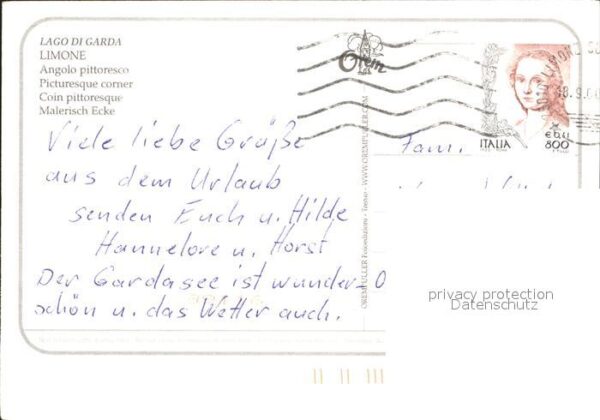 LAGO DI GARDA
LIMONE
Angolo pittoresco
Picturesque corner
Coin pittoresque
Malerisch Ecke
Orem
€ 0,41
800
ITALIA
Viele liebe Grüße
aus dem Urlaub
senden Euch u. Hilde
Hannelore u. Horst
Der Gardasee ist wunder-
schön u. das Wetter auch.
Fam.
privacy protection
Datenschutz